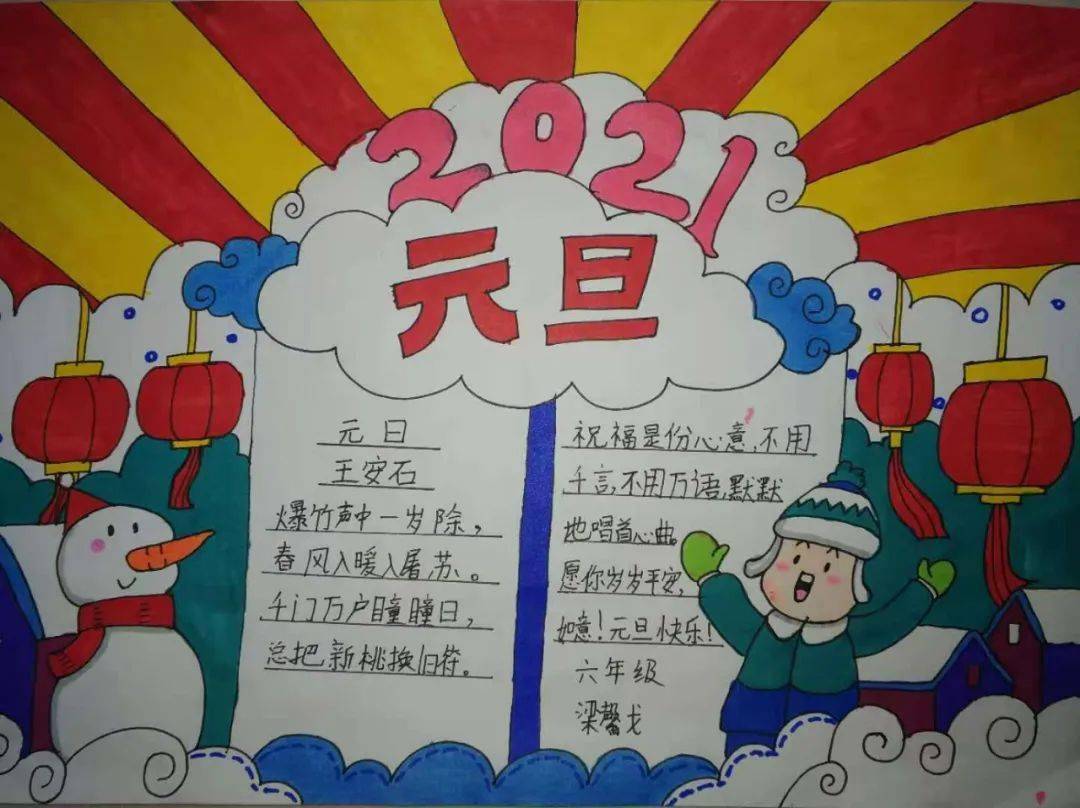 2021
元旦
元日
王安石
爆竹声中一岁除，
春风入暖入屠苏。
千门万户瞳瞳日，
总把新桃换旧符。
祝福是份心意，不用
千言，不用万语，默默
地唱首心曲。
愿你岁岁平安，
如意！元旦快乐！
六年级
梁馨戈